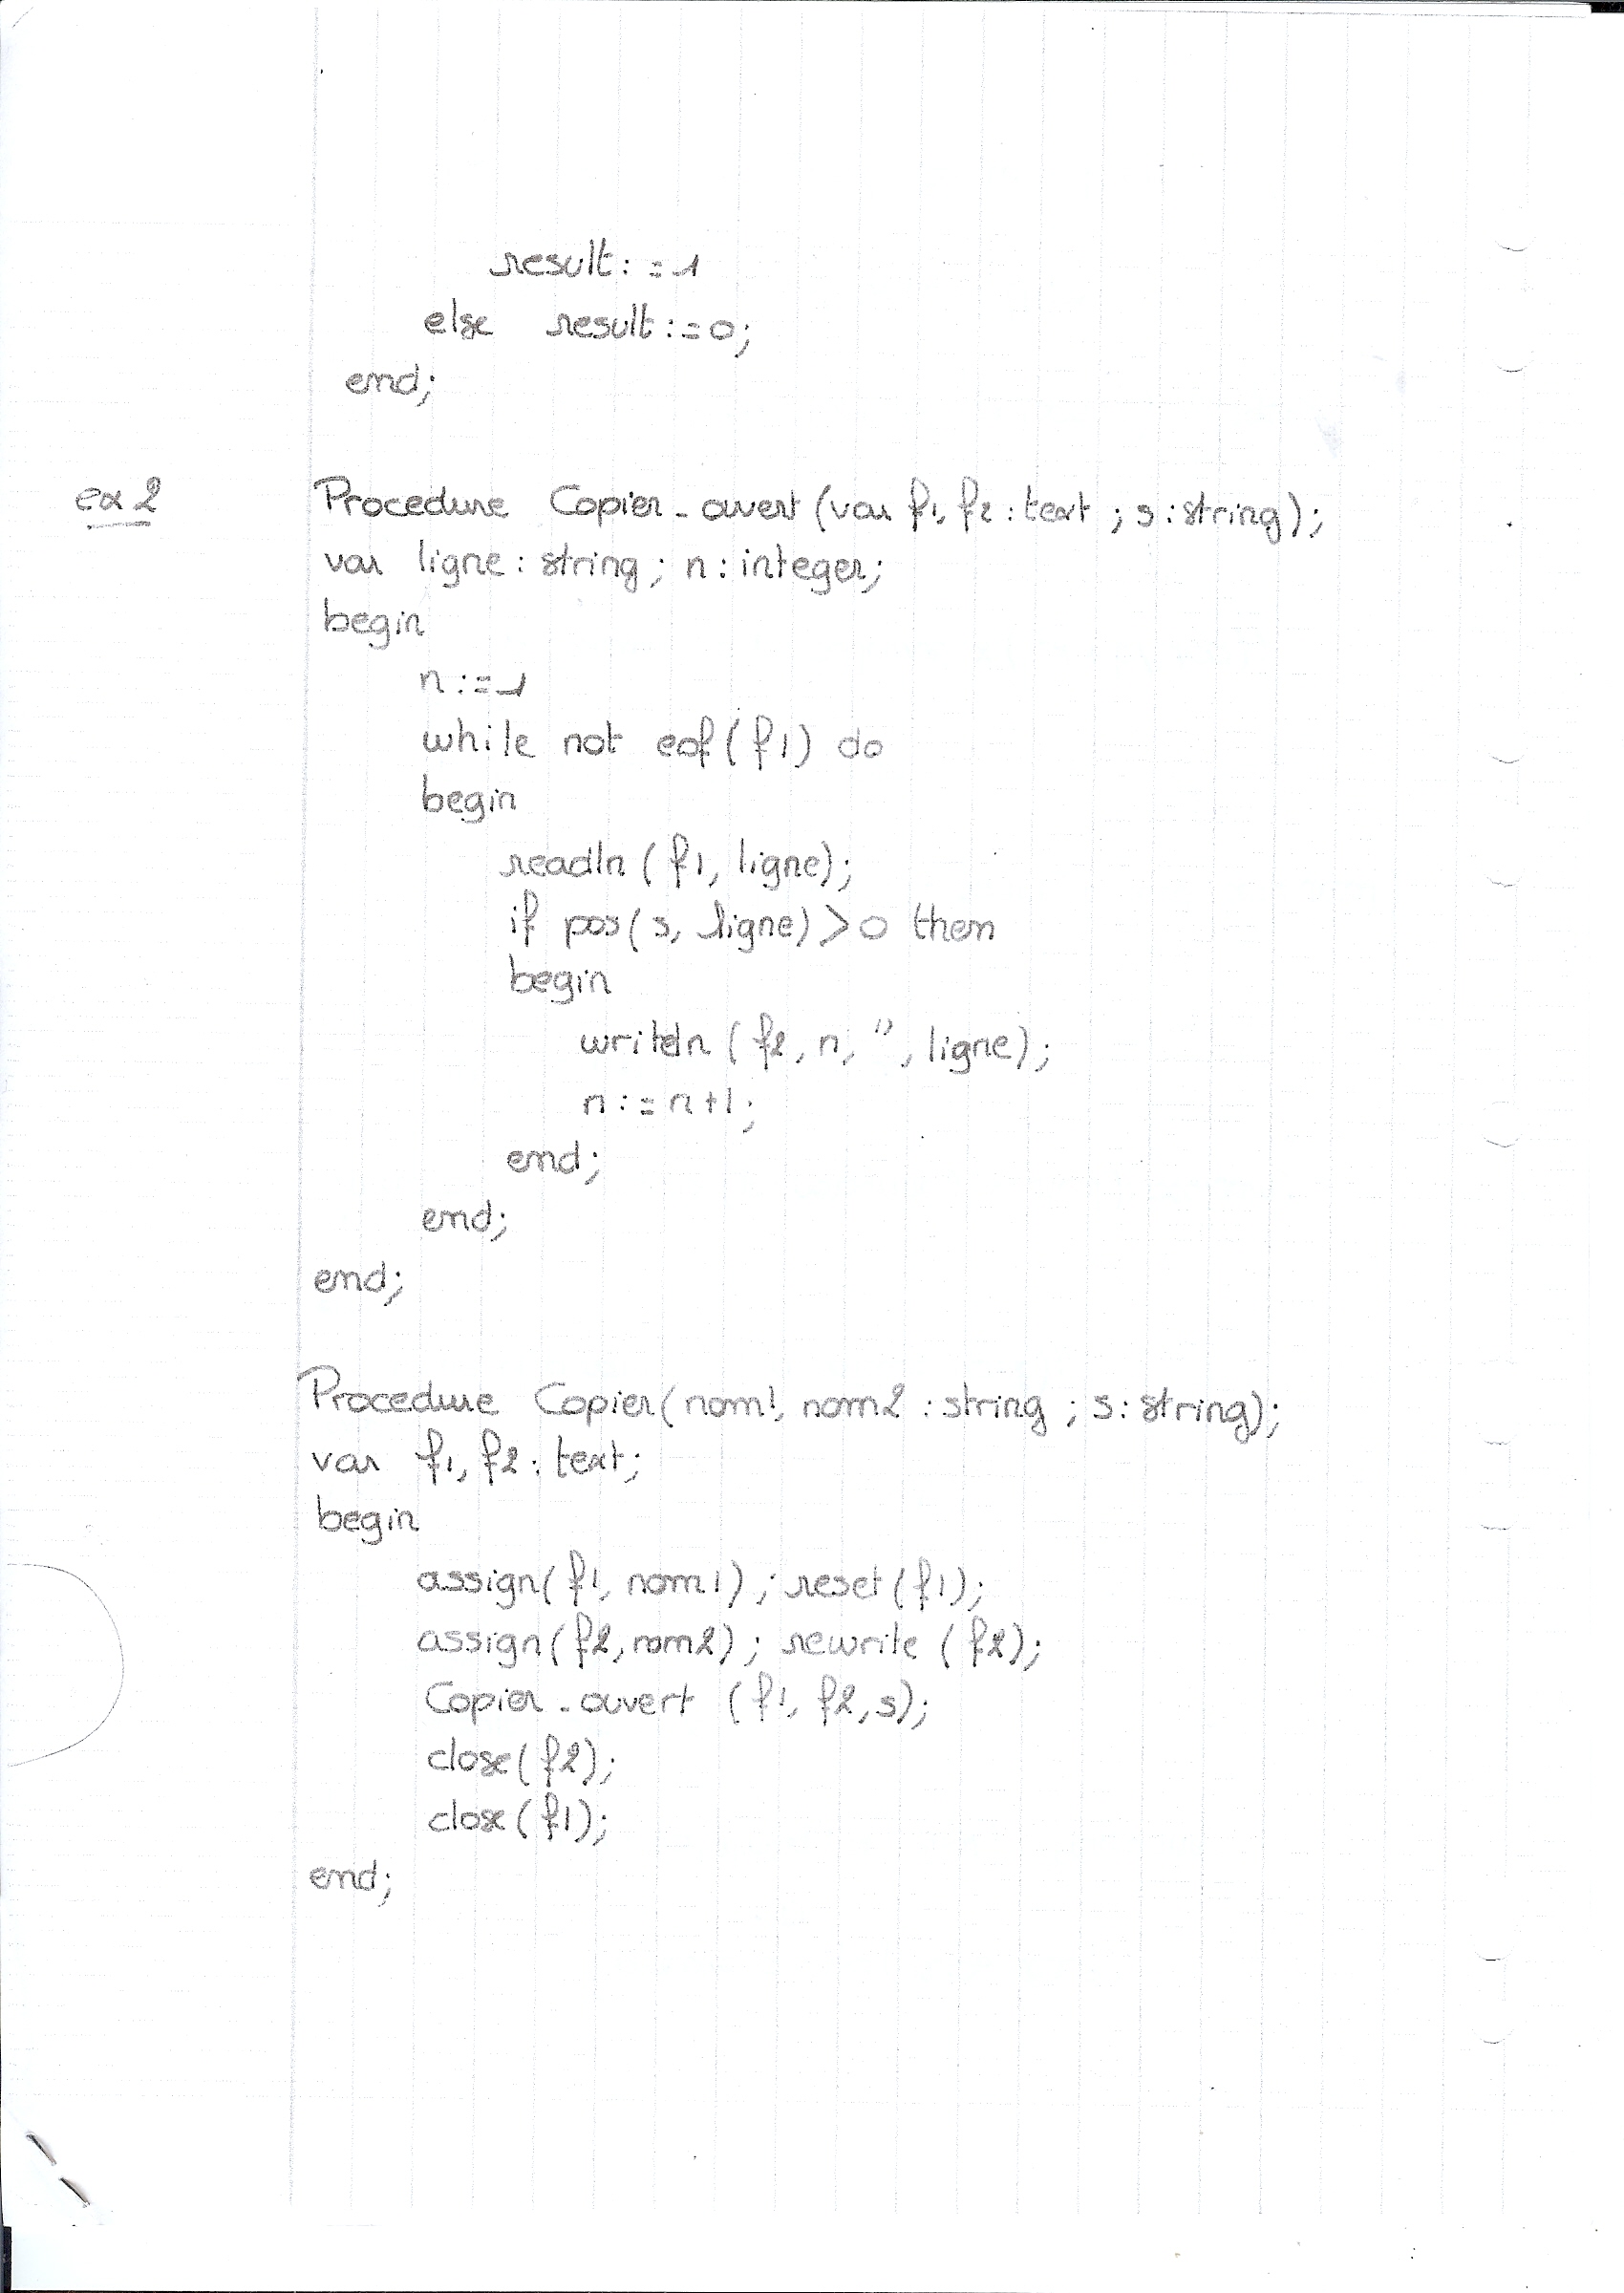 result:=1
else result:=0;
end;
ex 2
Procedure Copier_ouvert (var f1, f2 : text ; s : string);
var ligne : string ; n : integer;
begin
n:=1
while not eof(f1) do
begin
readln (f1, ligne);
if pos(s, ligne) > 0 then
begin
writeln (f2, n, '' , ligne);
n:=n+1;
end;
end;
end;
Procedure Copier(nom1, nom2 : string ; s : string);
var f1, f2 : text;
begin
assign(f1, nom1) ; reset(f1);
assign(f2, nom2) ; rewrite (f2);
Copier_ouvert (f1, f2, s);
close(f2);
close(f1);
end;